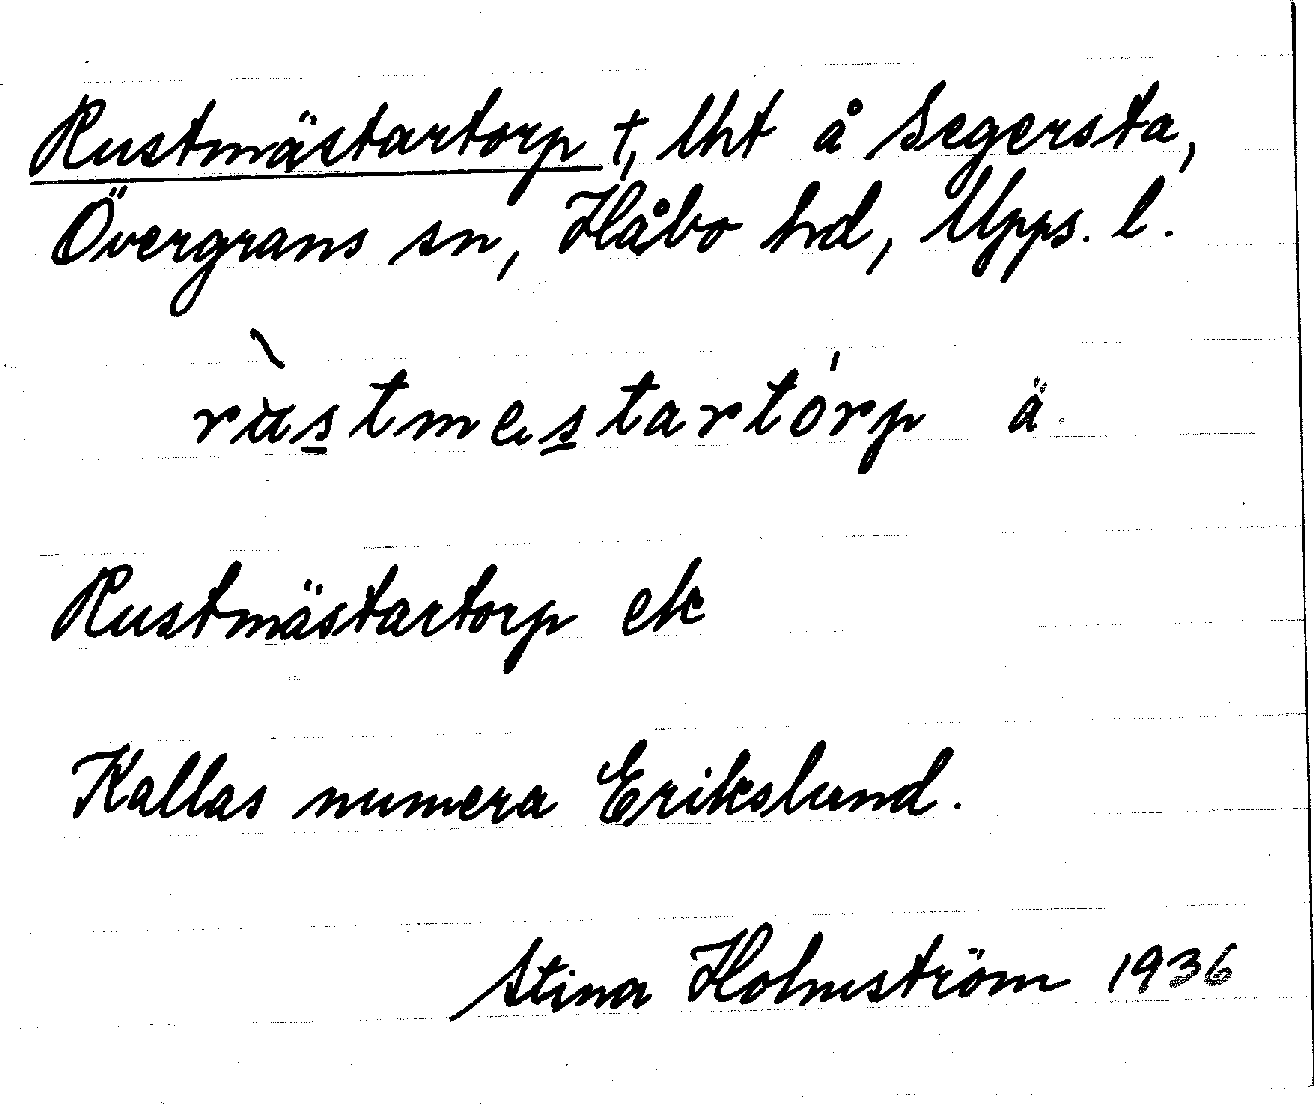 Rustmästartorp t, lht å Segersta,
Övergrans sn, Håbo hd, Upps. l.
rùstmestartórp ä.
Rustmästartorp ek
Kallas numera Erikslund.
Stina Holmström 1936